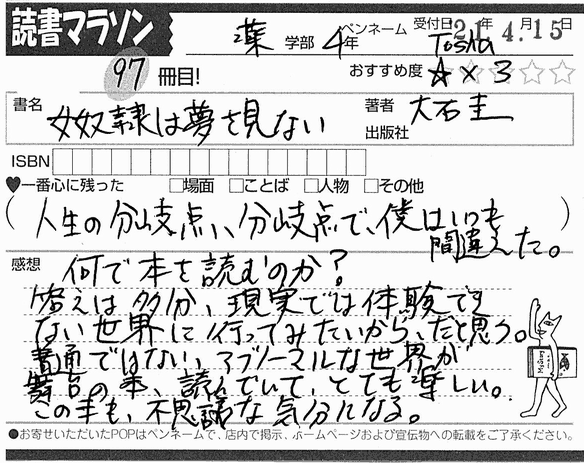 読書マラソン
薬 学部 4年
ペンネーム Tosha
受付日'21年 4月15日
97 冊目!
おすすめ度 ☆×3 ☆☆
書名 女奴隷は夢を見ない
著者 大石圭
出版社
ISBN
♥一番心に残った □場面 □ことば □人物 □その他
(人生の分岐点、、分岐点で、僕はいつも
間違えた。)
感想 何で本を読むのか?
答えは多分、現実では体験でき
ない世界に行ってみたいから、だと思う。
普通ではない、アブノーマルな世界が
舞台の本、読んでいて、とても楽しい。
この本も、不思議な気分になる。
●お寄せいただいたPOPはペンネームで、店内で掲示、ホームページおよび宣伝物への転載をご了承ください。